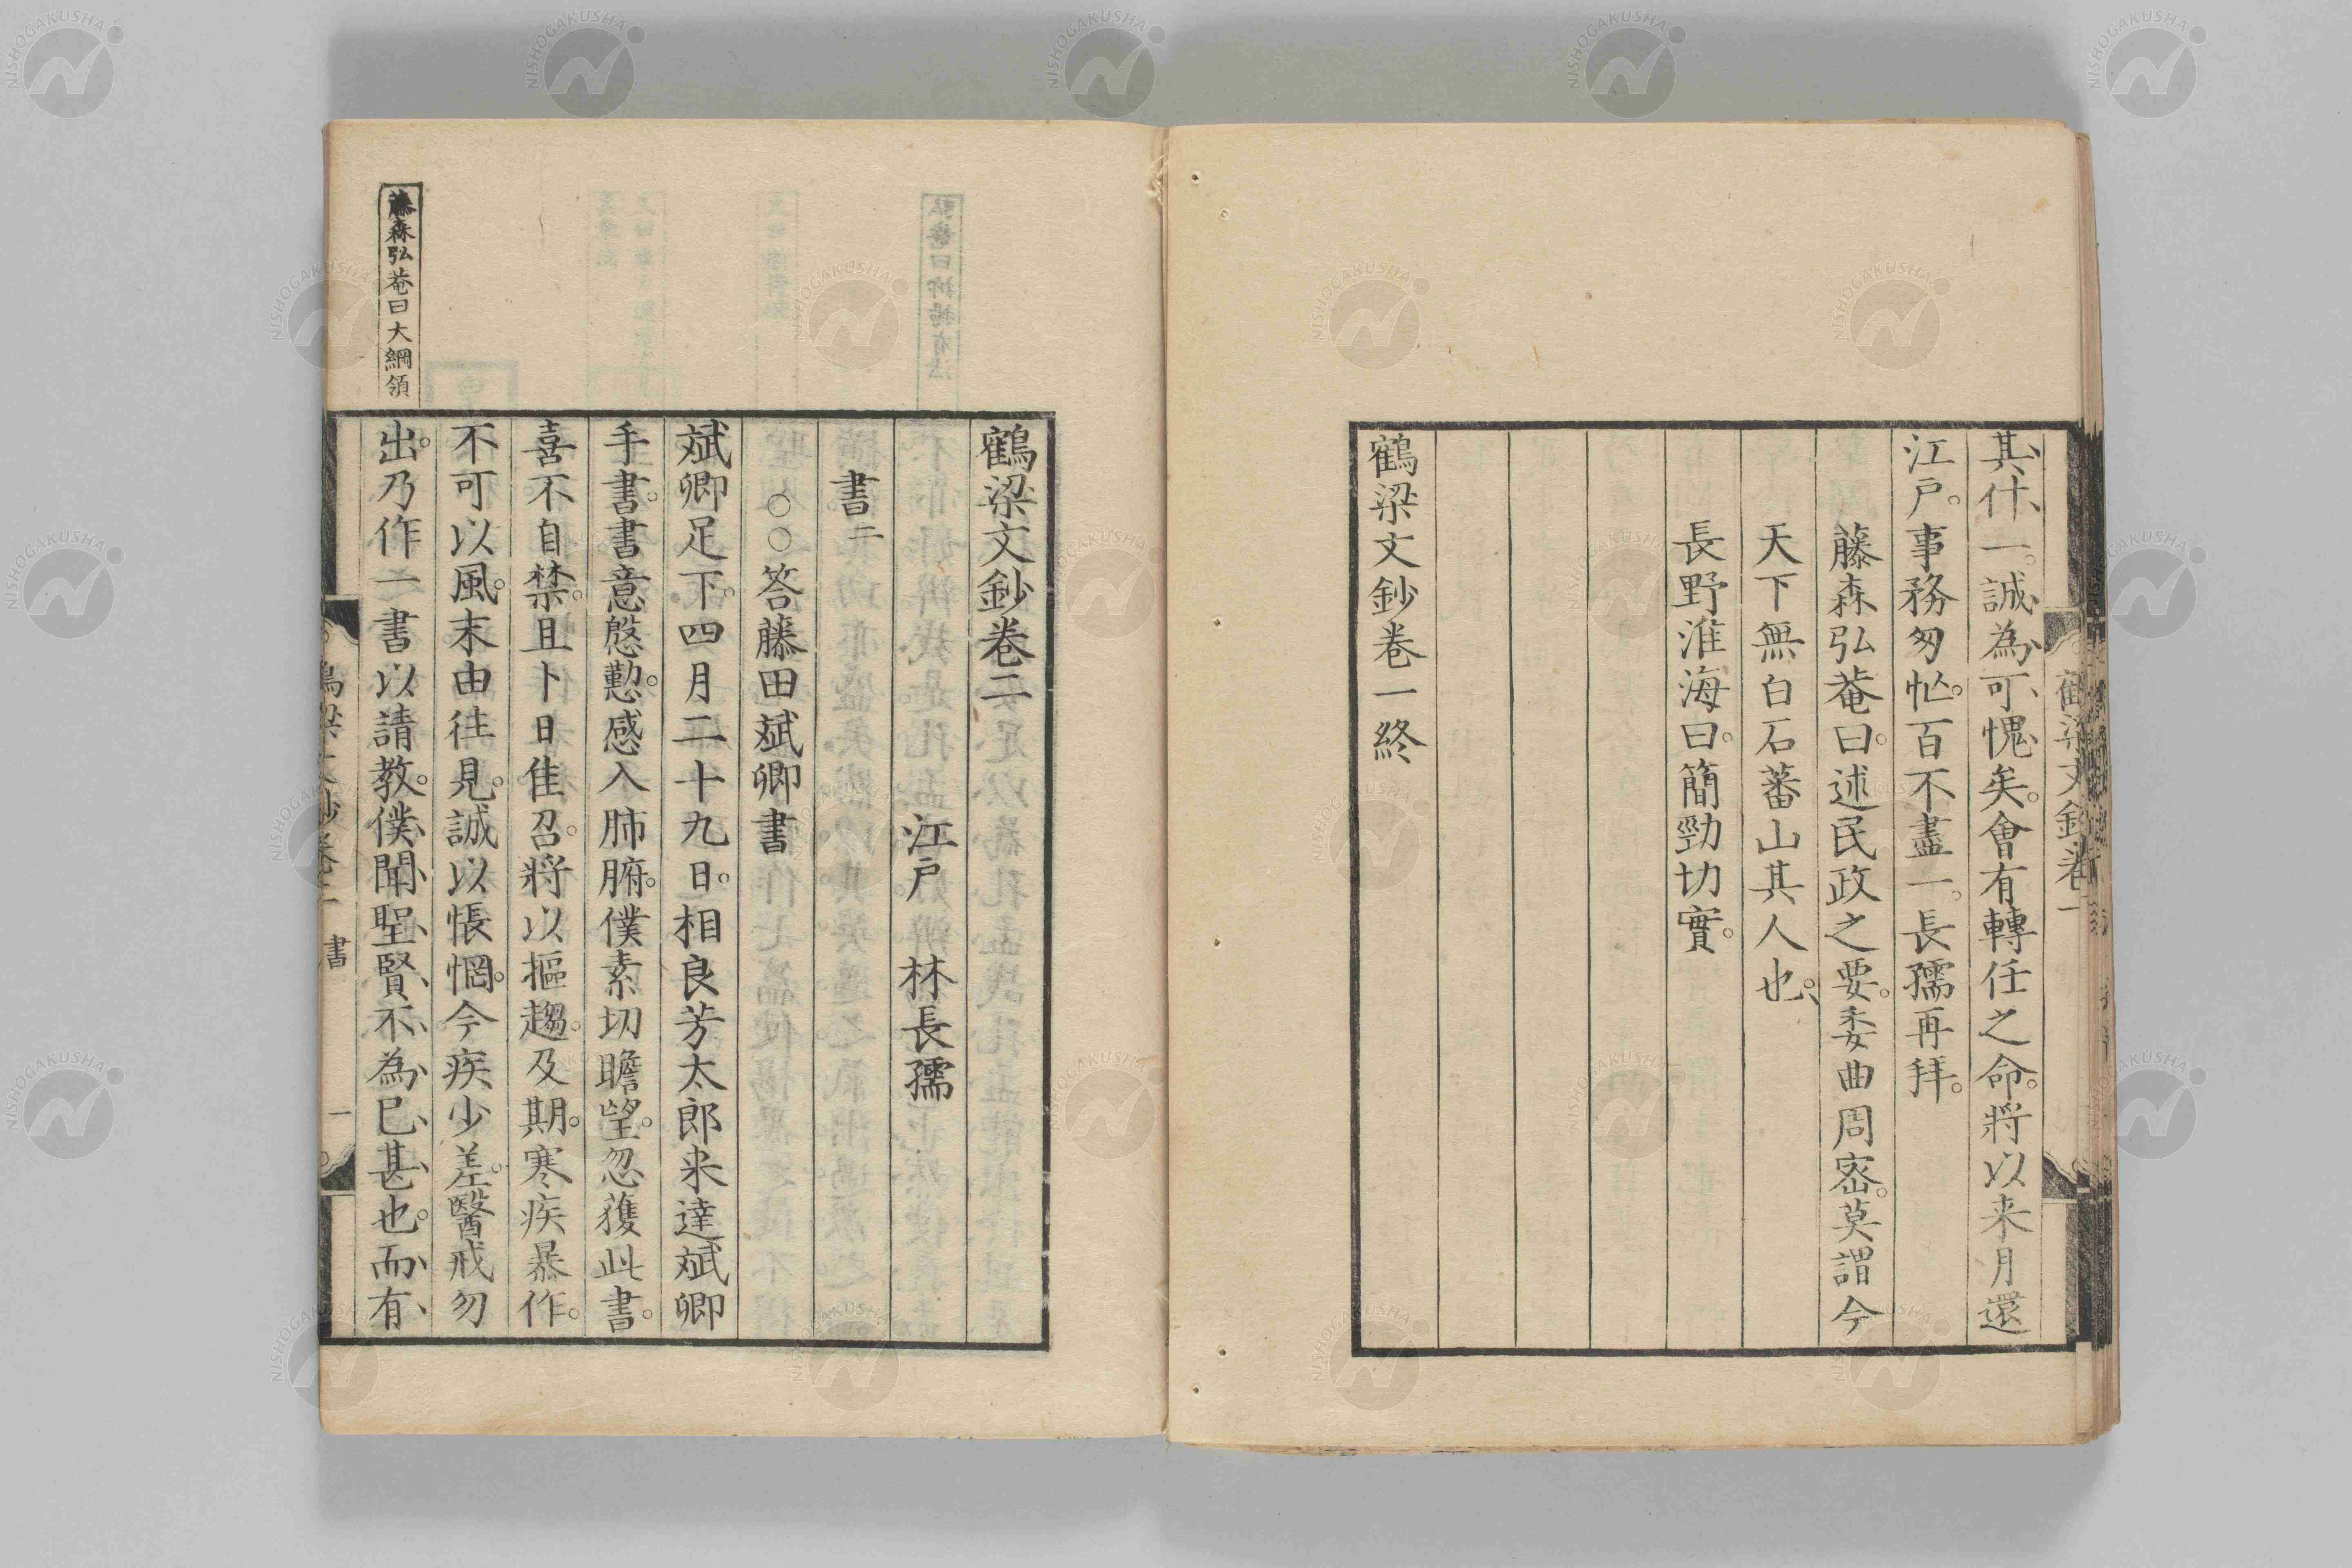 其什一。誠為可愧矣。會有轉任之命。將以来月還
江戸。事務匆忙。百不盡一。長孺再拜。
藤森弘菴曰。述民政之要。委曲周密。莫謂今
天下無白石蕃山其人也。
長野淮海曰。簡勁切實。
鶴梁文鈔卷一終
鶴梁文鈔卷一
鶴梁文鈔卷二
江戸 林長孺
書二
○○答藤田斌卿書
斌卿足下。四月二十九日。相良芳太郎来達斌卿
手書。書意慇懃。感入肺腑。僕素切瞻望。忽獲此書。
喜不自禁。且卜日隹召。將以摳趨。及期。寒疾暴作。
不可以風。末由往見。誠以悵惘。今疾少差。醫戒勿
出。乃作一書以請教。僕聞聖賢不為已甚也。而有
藤森弘菴曰大綱領
鶴梁文鈔卷二 書 一
NISHOGAKUSHA